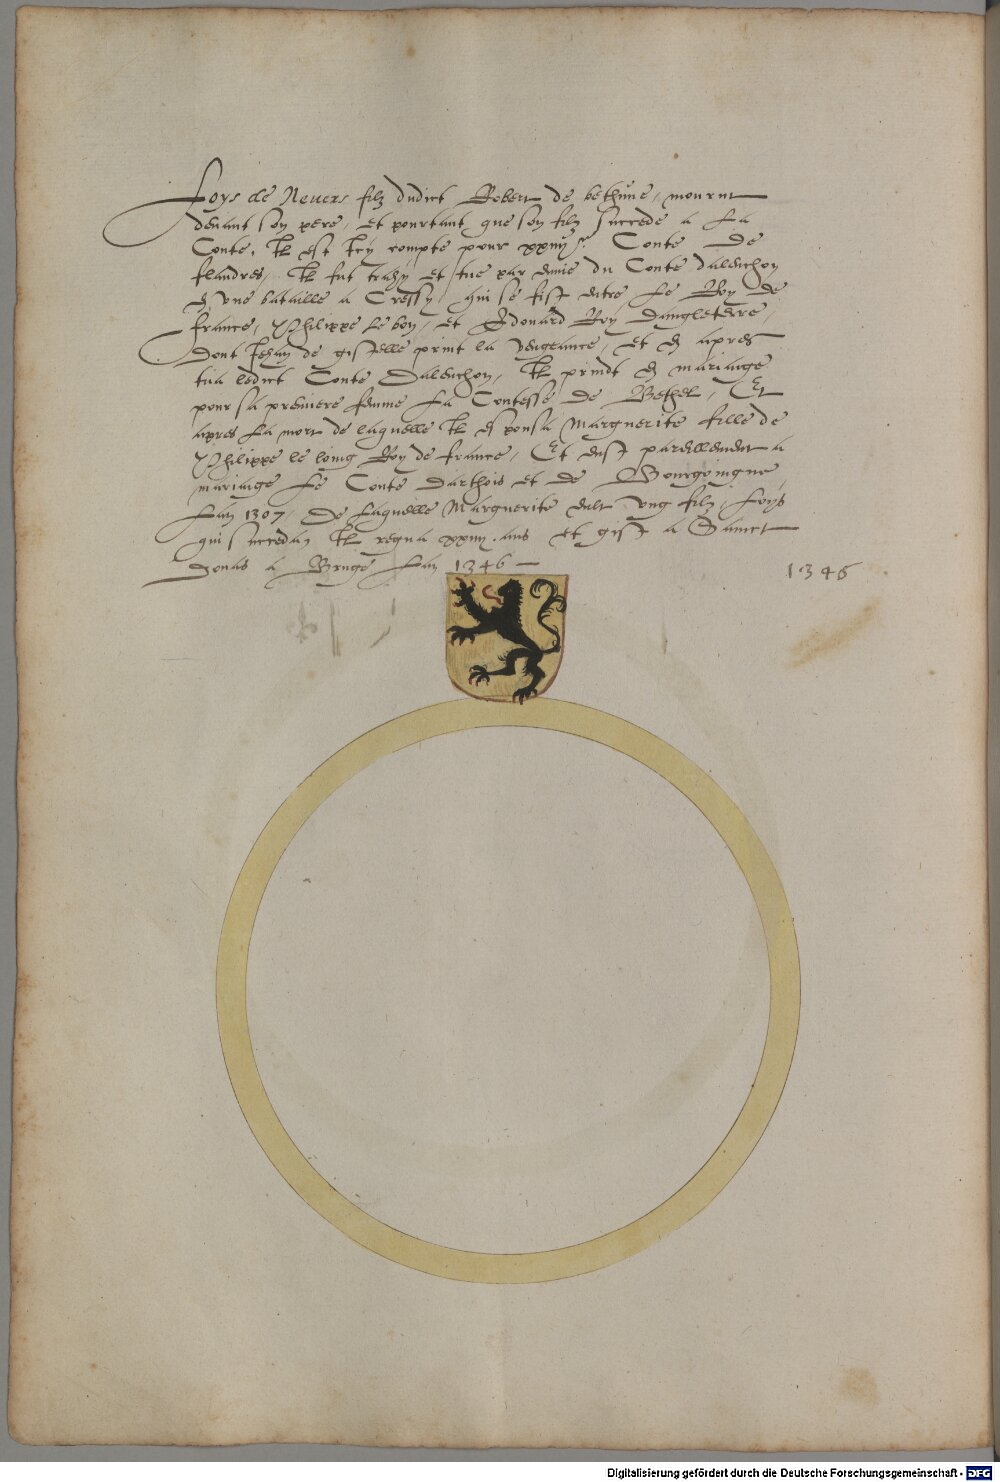 Loys de Nevers filz dudict Robert de bethune, mourut
devant son pere, et pourtant que son filz succede a La
Conte, Il est Icy compte pour xxiiij.e Conte De
flandres, Il fut trahy et tue par envie du Conte dalenchon
En une bataille a Cressy, qui se fist entre Le Roy de
france, Philippe Le bon, et Edouard Roy Dangleterre,
Dont Jehan de gistelle print la vengeance, et En apres
tua ledict Conte Dalenchon, Il prindt En mariaige
pour sa premiere femme La Contesse De Rethel, Et
apres La mort de laquelle Il Espousa Marguerite fille de
Philippe le long Roy de france, Et eust pareillement a
mariaige Le Conte Darthois et de Bourgoingne
Lan 1307, De Laquelle Marguerite eult ung filz, Loys
qui succedda Il regna xxiiij. ans et gist a Sainct
Donas a Bruge Lan 1346
1346
Digitalisierung gefördert durch die Deutsche Forschungsgemeinschaft - DFG